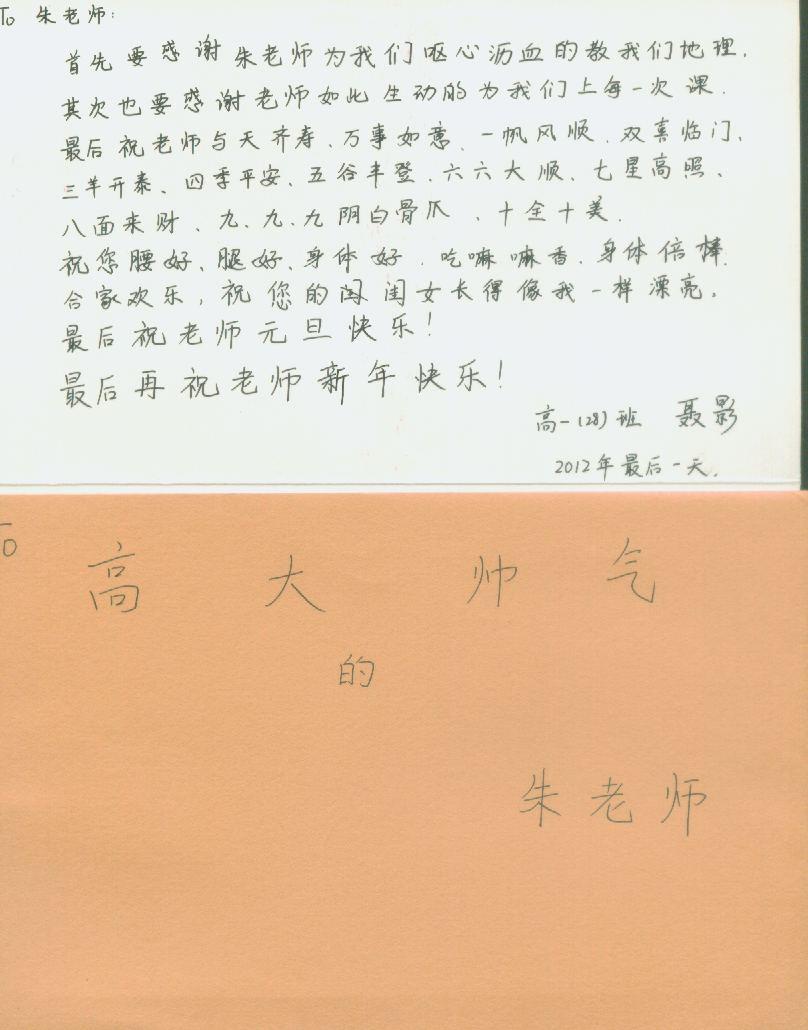 To 朱老师:
首先要感谢朱老师为我们呕心沥血的教我们地理.
其次也要感谢老师如此生动的为我们上每一次课.
最后祝老师与天齐寿、万事如意、一帆风顺、双喜临门、
三羊开泰、四季平安、五谷丰登、六六大顺、七星高照、
八面来财、九、九、九阴白骨爪、十全十美.
祝您腰好、腿好、身体好、吃嘛嘛香、身体倍棒.
合家欢乐,祝您的闺闺女长得像我一样漂亮。
最后祝老师元旦快乐!
最后再祝老师新年快乐!
高一(28)班 聂影
2012年最后一天.
To
高大帅气
的
朱老师